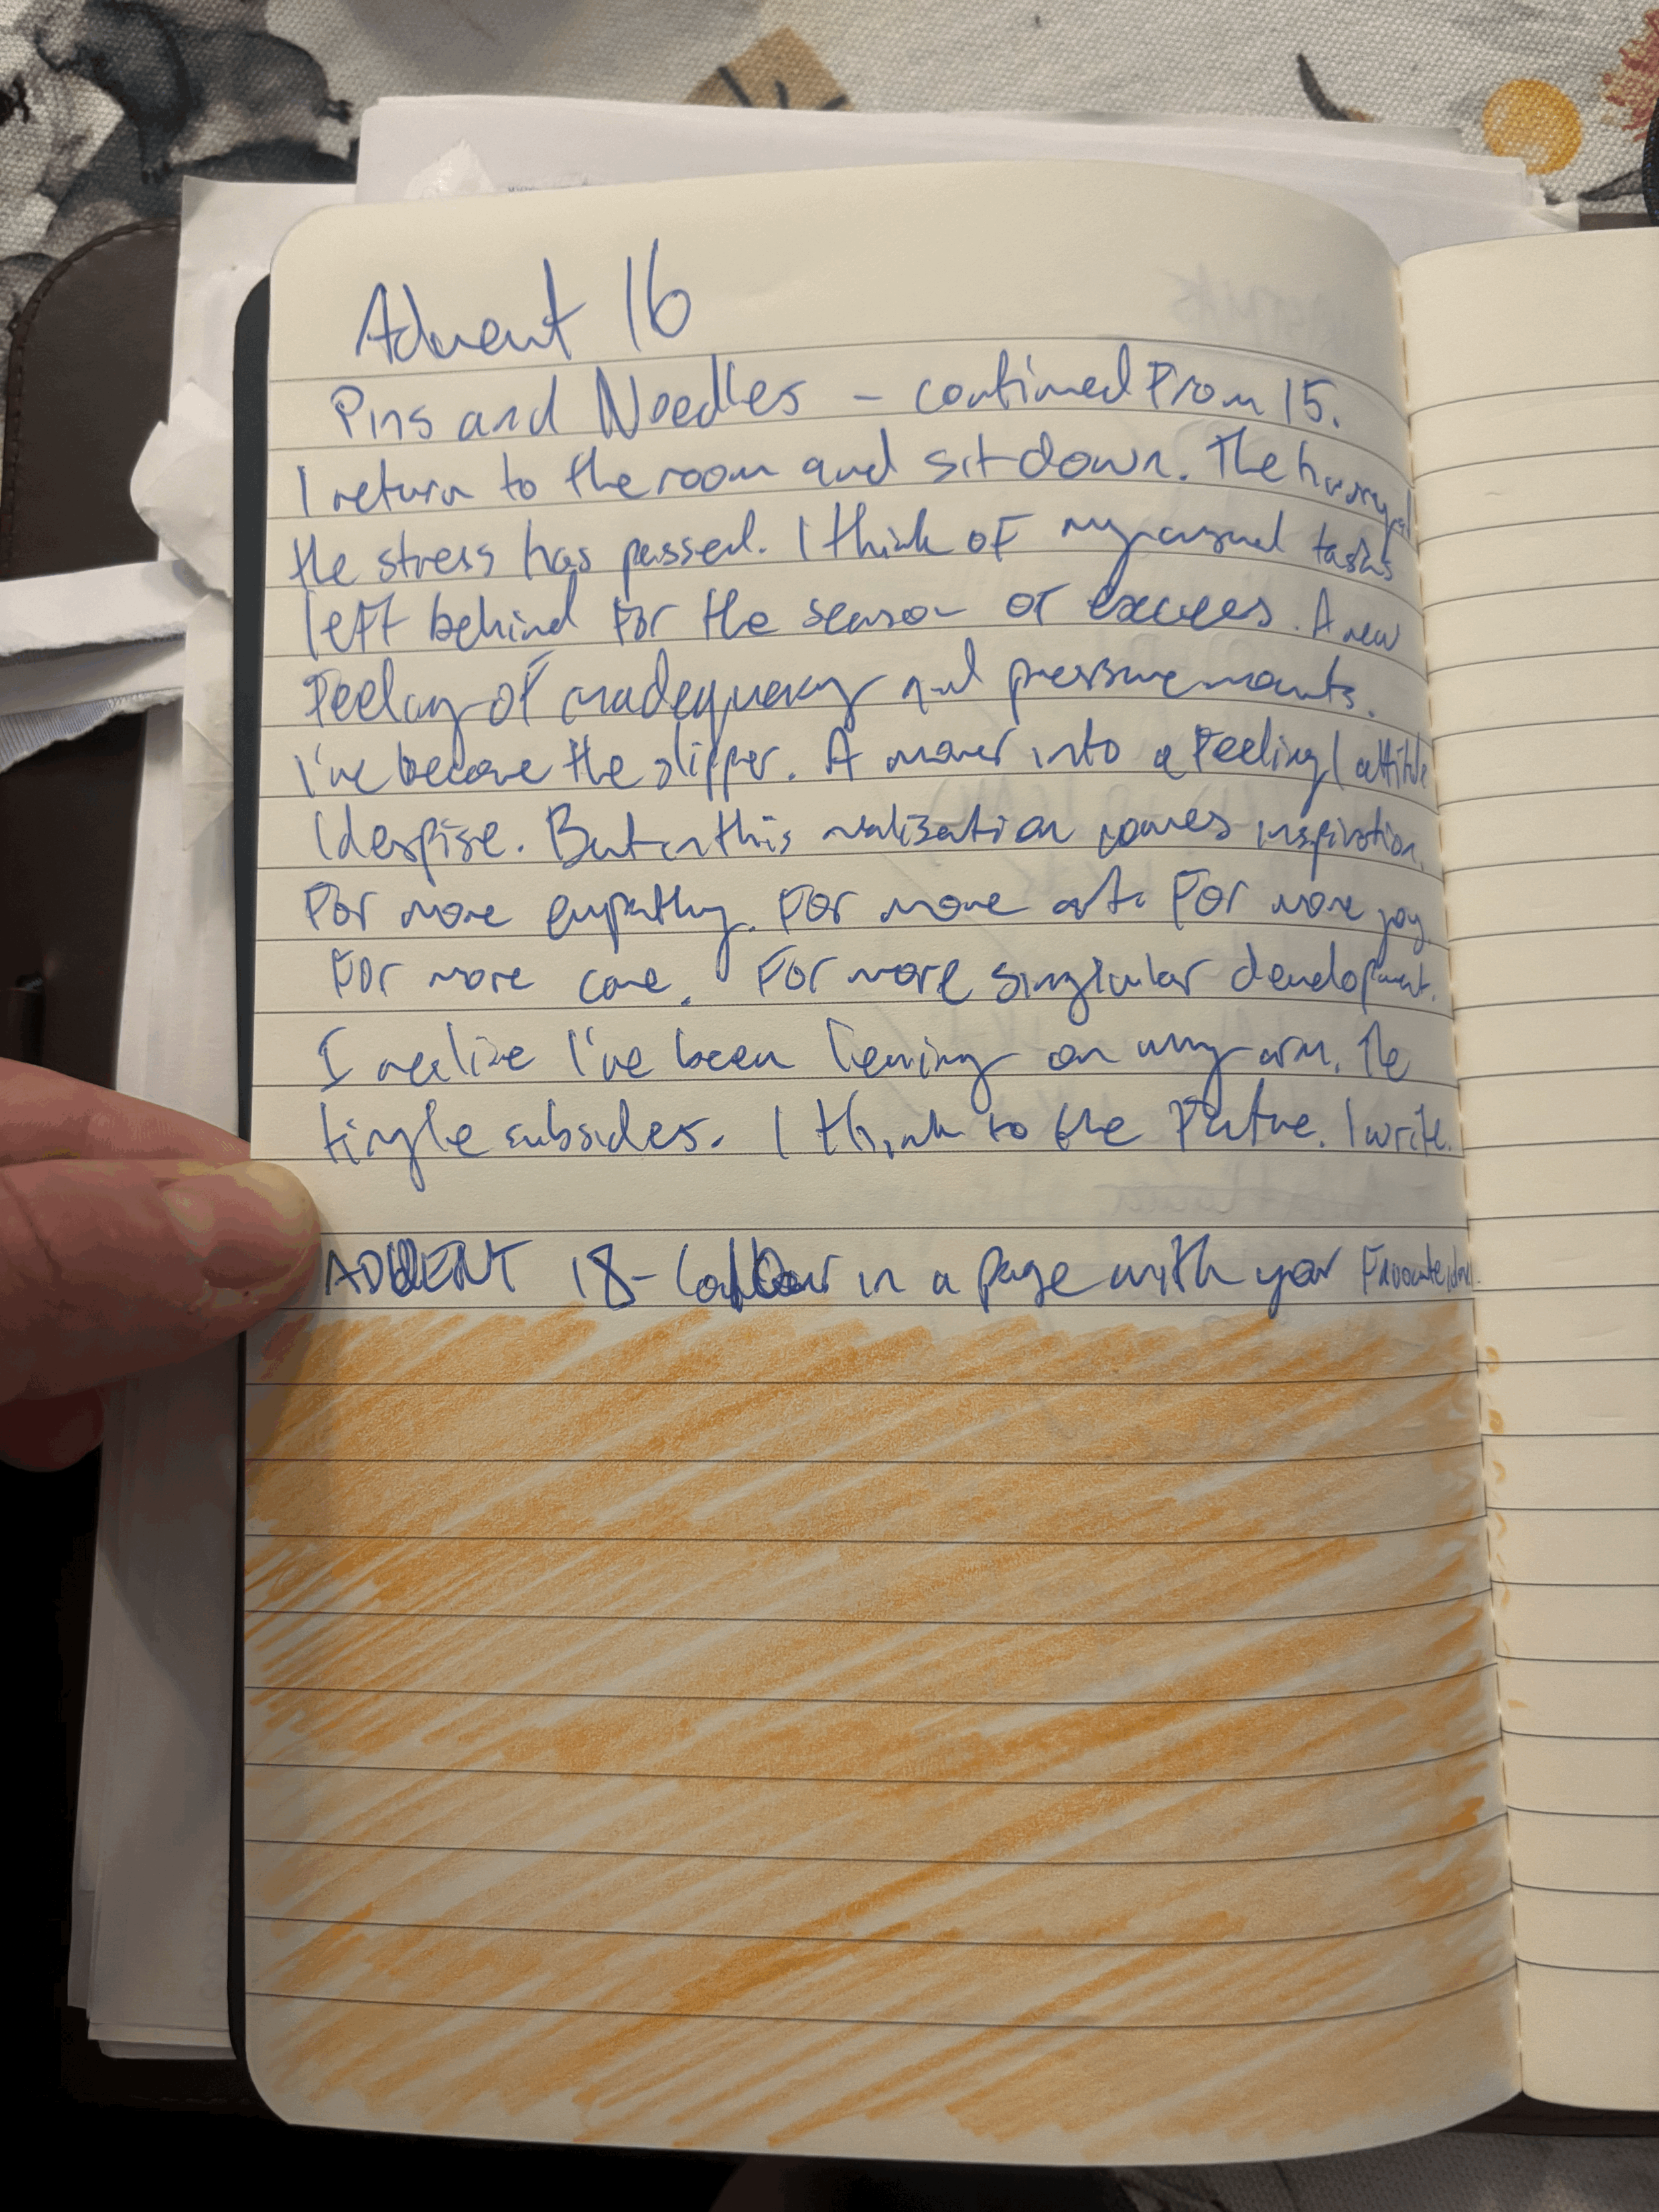 Advent 16
Pins and Needles - continued From 15.
I return to the room and sit down. The
the stress has passed. I think of my casual tasks
left behind for the season of excess. A new
Feeling of inadequacy and pressure mounts.
I've become the slipper. A mover into a Feeling/attitude
I despise. But in this realisation comes inspiration.
For more empathy. For more art. For more joy.
For more care. For more singular development.
I realize I've been leaning on my arm. The
tingle subsides. I think to the Future. I write.
ADVENT 18- Colour in a page with your Favourite